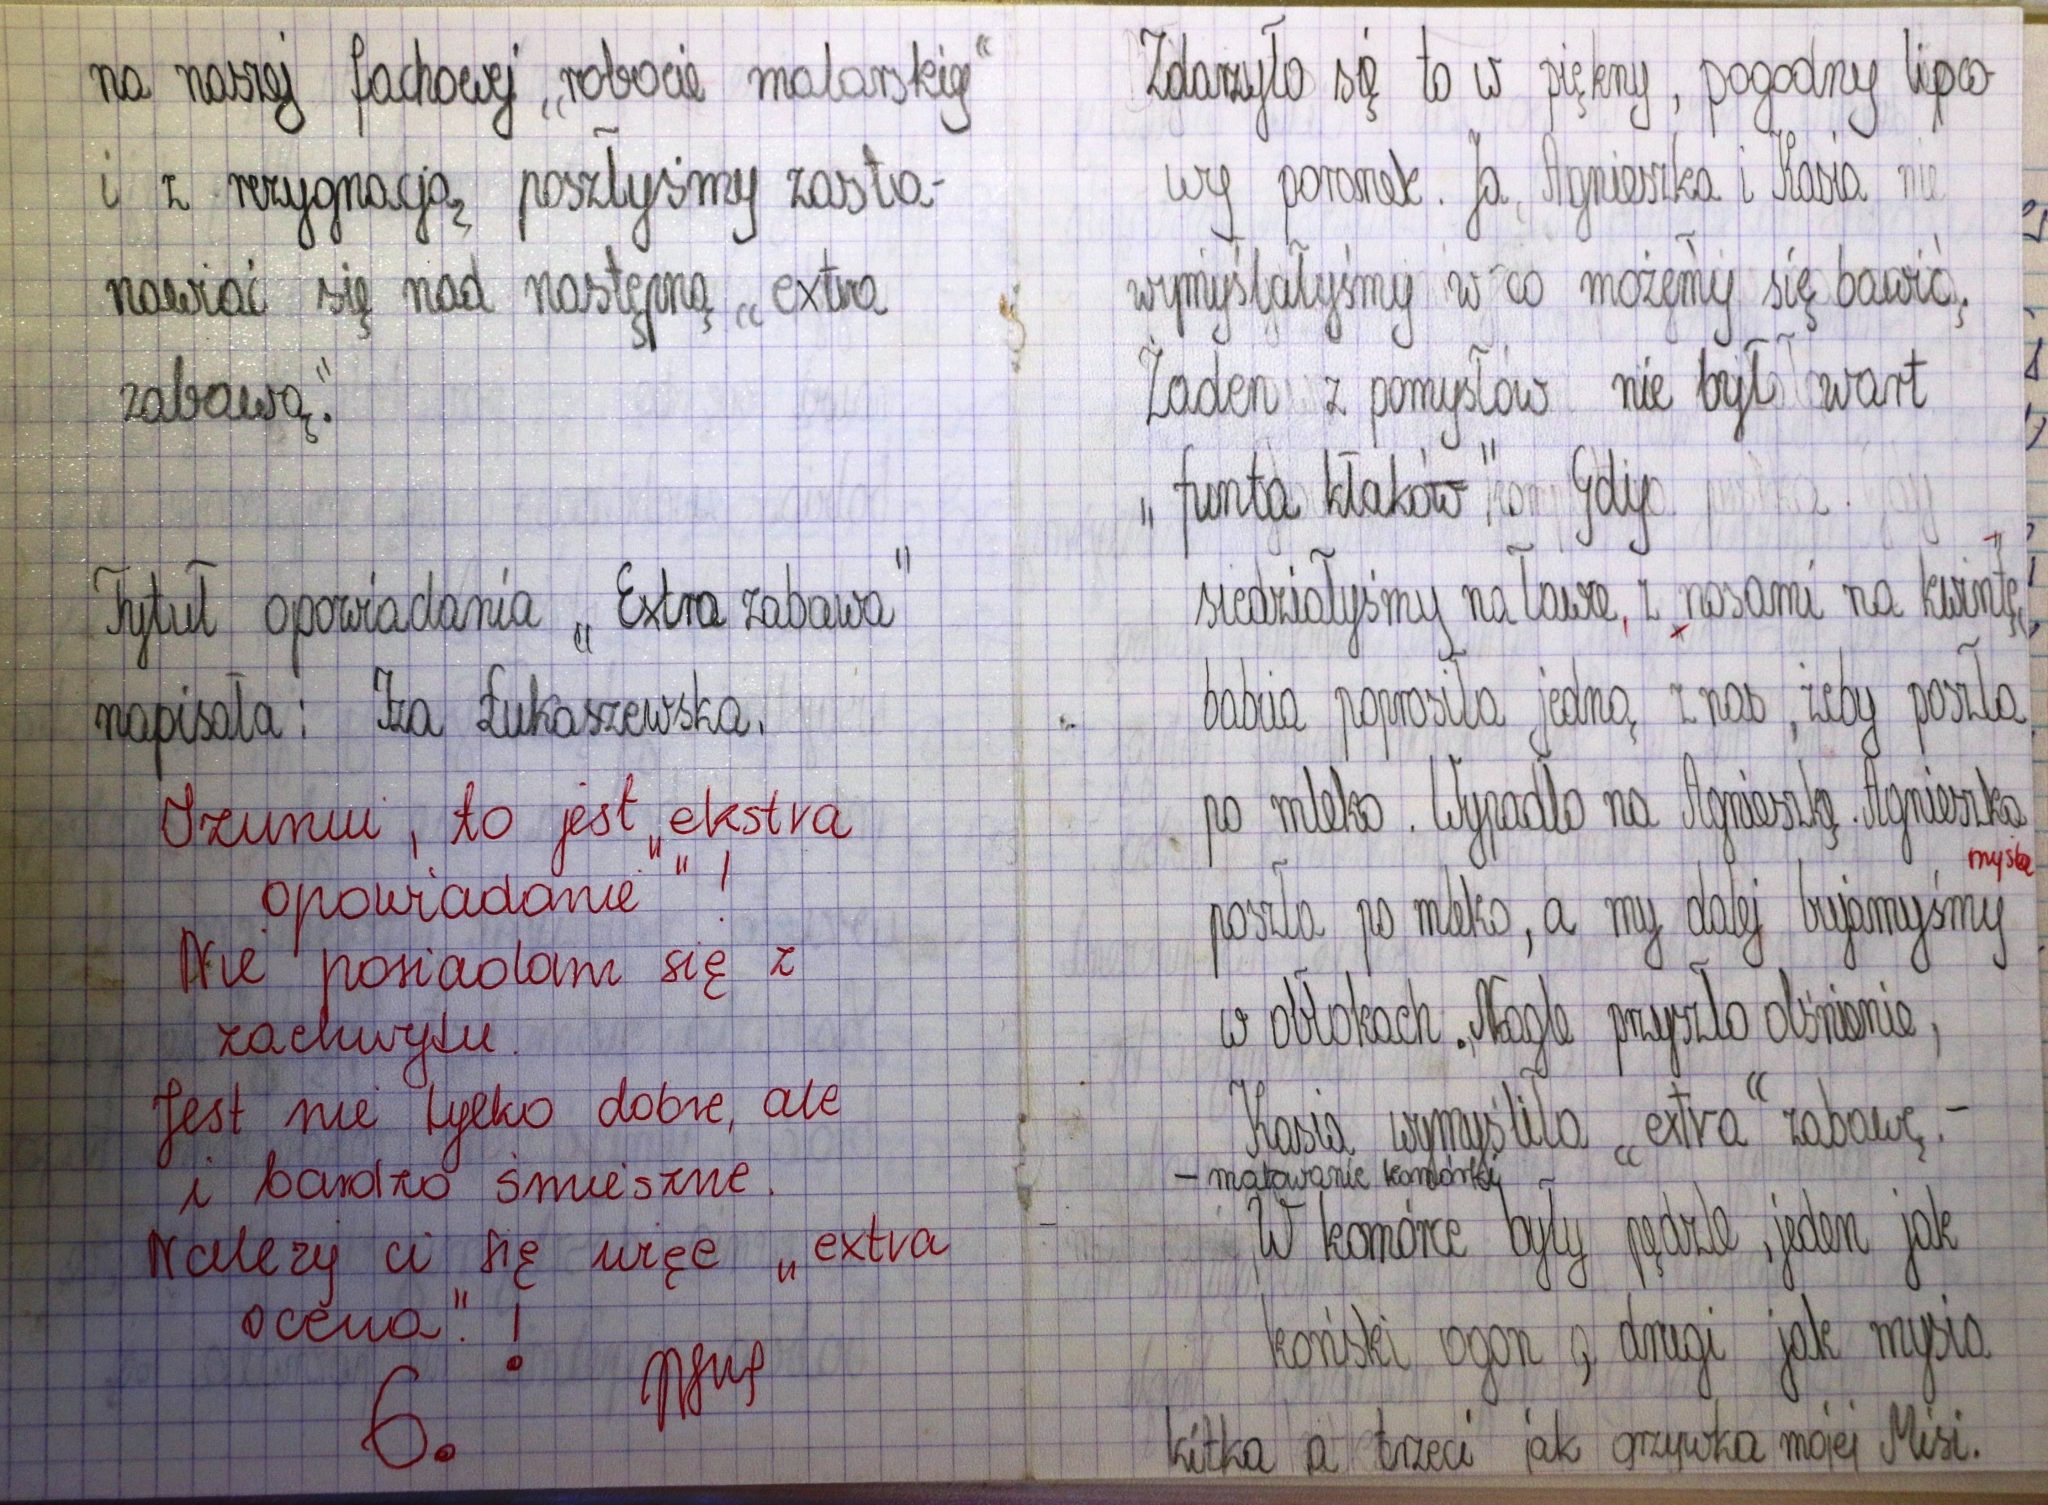 na naszej fachowej „robocie malarskiej“
i z rezygnacją poszłyśmy zasta-
nawiać się nad następną „extra
zabawą."
Tytuł opowiadania „Extra zabawa"
napisała: Iza Łukaszewska.
Izuniu, to jest „ekstra
opowiadanie" !
Nie posiadam się z
zachwytu.
Jest nie tylko dobre, ale
i bardzo śmieszne.
Należy ci się więc „extra
ocena". !
6.
Zdarzyło się to w piękny, pogodny lipco-
wy poranek. Ja, Agnieszka i Kasia nie
wymyślałyśmy w co możemy się bawić.
Żaden z pomysłów nie był wart
„funta kłaków". Gdy
siedziałyśmy na ławce, z nosami na kwintę,
babcia poprosiła jedną z nas, żeby poszła
po mleko. Wypadło na Agnieszkę. Agnieszka
myśla
poszła po mleko, a my dalej bujamyśmy
w obłokach. Nagle przyszło olśnienie,
Kasia wymyśliła „extra“ zabawę. -
- malowanie komórki
W komórce były pędzle, jeden jak
koński ogon, drugi jak mysia
kitka a trzeci jak grzywka mojej Misi.